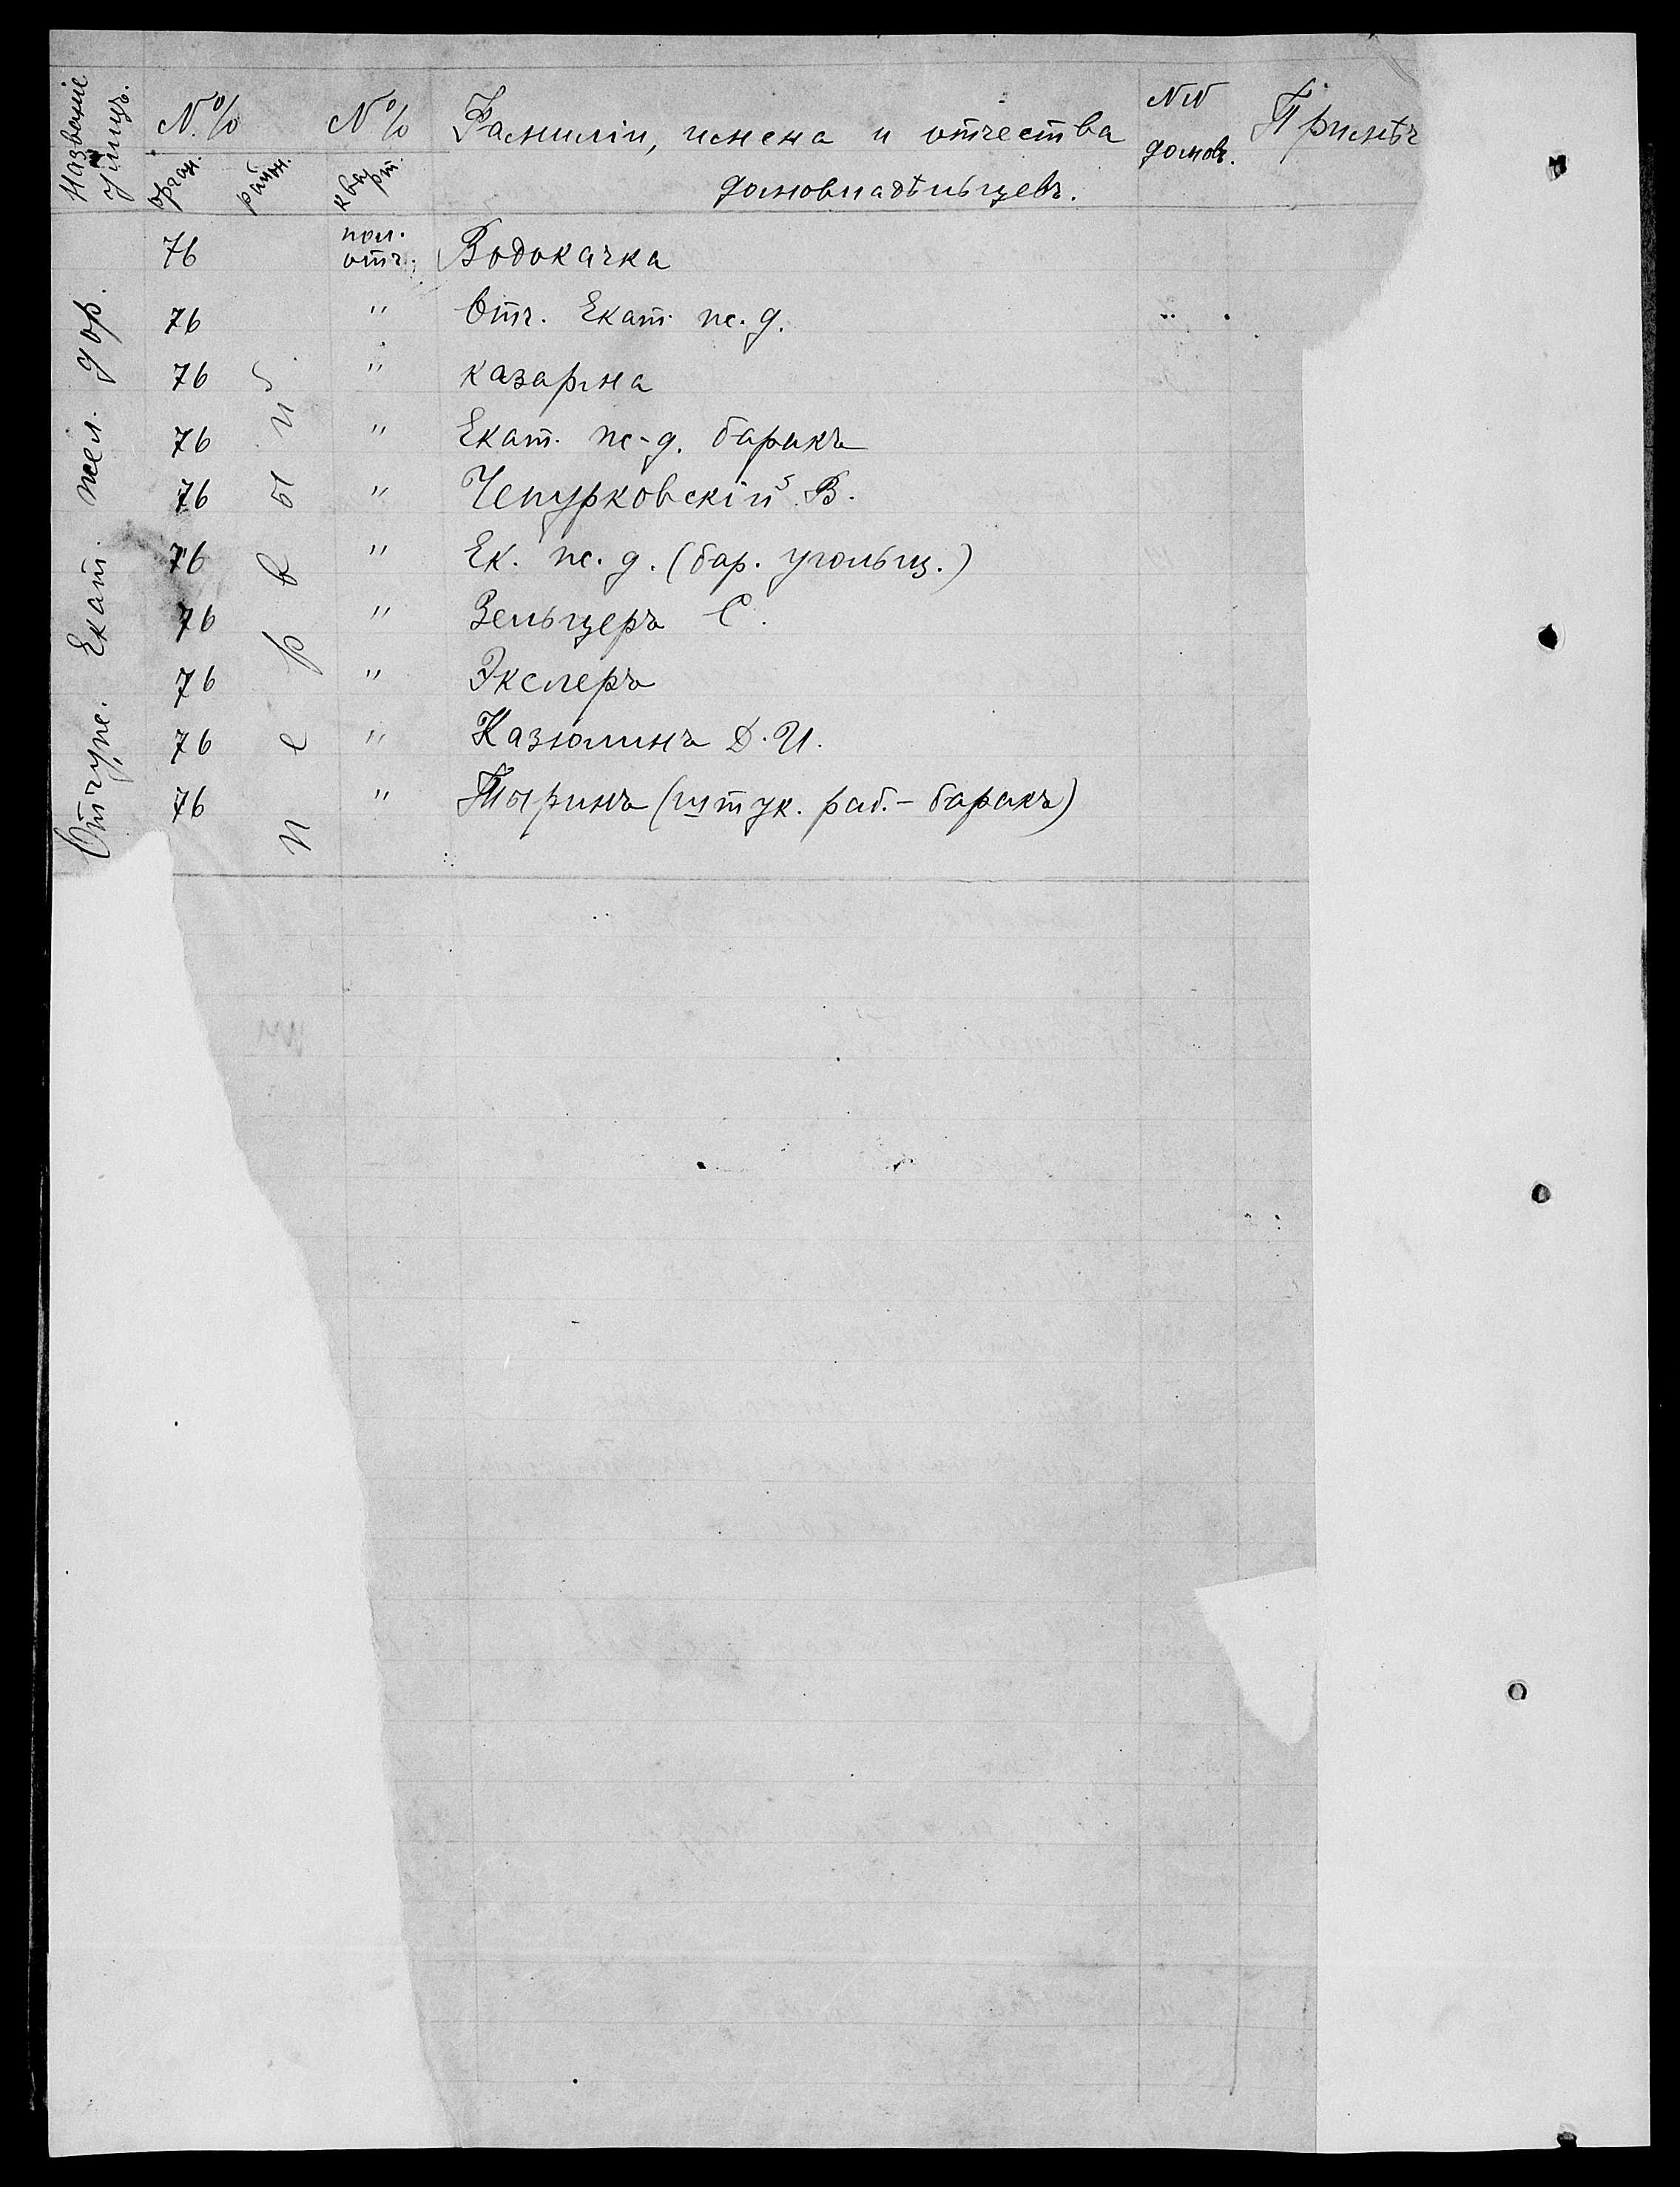 Названіе улицъ.
№№ орган. район.
№№ кварт.
Фамиліи, имена и отчества домовладѣльцевъ.
№№ домовъ.
Примѣч
Отчуж. Екат. жел. дор.
первый
76 пол. отч. Водокачка
76 " Отч. Екат. ж. д.
76 " казарма
76 " Екат. ж-д. баракъ
76 " Чепурковскій В.
76 " Ек. ж. д. (бар. угольщ.)
76 " Зельцеръ С.
76 " Экслеръ
76 " Казюлинъ Д. И.
76 " Тыринъ (штук. раб. - баракъ)